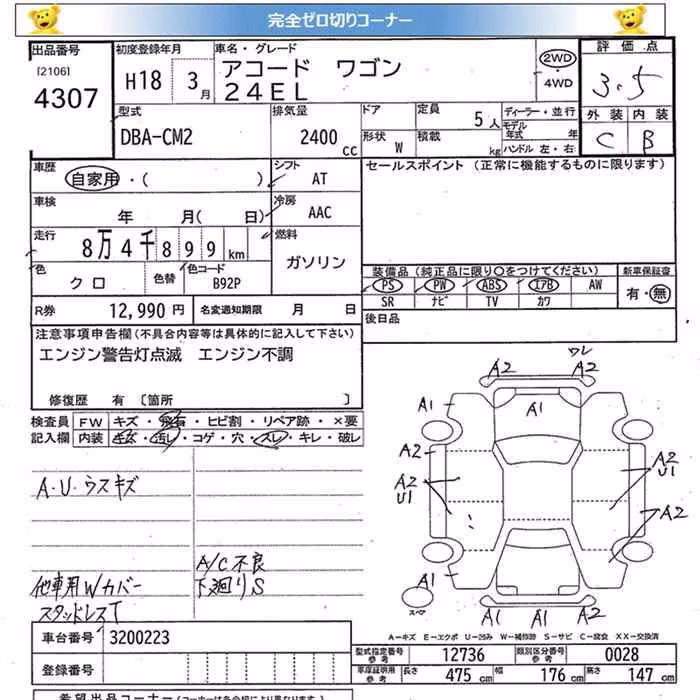 完全ゼロ切りコーナー
出品番号 初度登録年月 車名・グレード 評価点
[2106] H18 3月 アコード ワゴン 2WD 3.5
4307 24EL 4WD
型式 排気量 ドア 定員 5人 ディーラー・並行 外装 内装
DBA-CM2 2400cc 形状 W 積載 kg モデル年式 年 C B
ハンドル 左・右
車歴 自家用・( ) シフト AT セールスポイント (正常に機能するものに限ります)
車検 年 月( 日) 冷房 AAC
走行 8万4千899km 燃料 ガソリン
色 クロ 色替 色コード B92P
装備品(純正品に限り○をつけてください) 新車保証書
PS PW ABS エアB AW 有・無
SR ナビ TV カワ
R券 12,990円 名変通知期限 月 日 後日品
注意事項申告欄(不具合内容等は具体的に記入して下さい)
エンジン警告灯点滅 エンジン不調
修復歴 有 [箇所 ]
検査員 FW キズ・飛石・ヒビ割・リペア跡・×要
記入欄 内装 キズ・汚レ・コゲ・穴・スレ・キレ・破レ
A・U・ウスキズ
A/C不良
他車用Wカバー 下廻りS
スタッドレスT
ワレ
A2 A2
A1 A1
A2 A2
A2 U1
U1 A2
A1 A1
スペア A1 A1 A2
A-キズ E-エクボ U-凹み W-補修跡 S-サビ C-腐食 XX-交換済
車台番号 3200223
登録番号
型式指定番号 参考 12736 類別区分番号 参考 0028
車庫証明用 参考 長さ 475cm 幅 176cm 高さ 147cm
希望出品コーナー(コーナーは各会場により異なります)